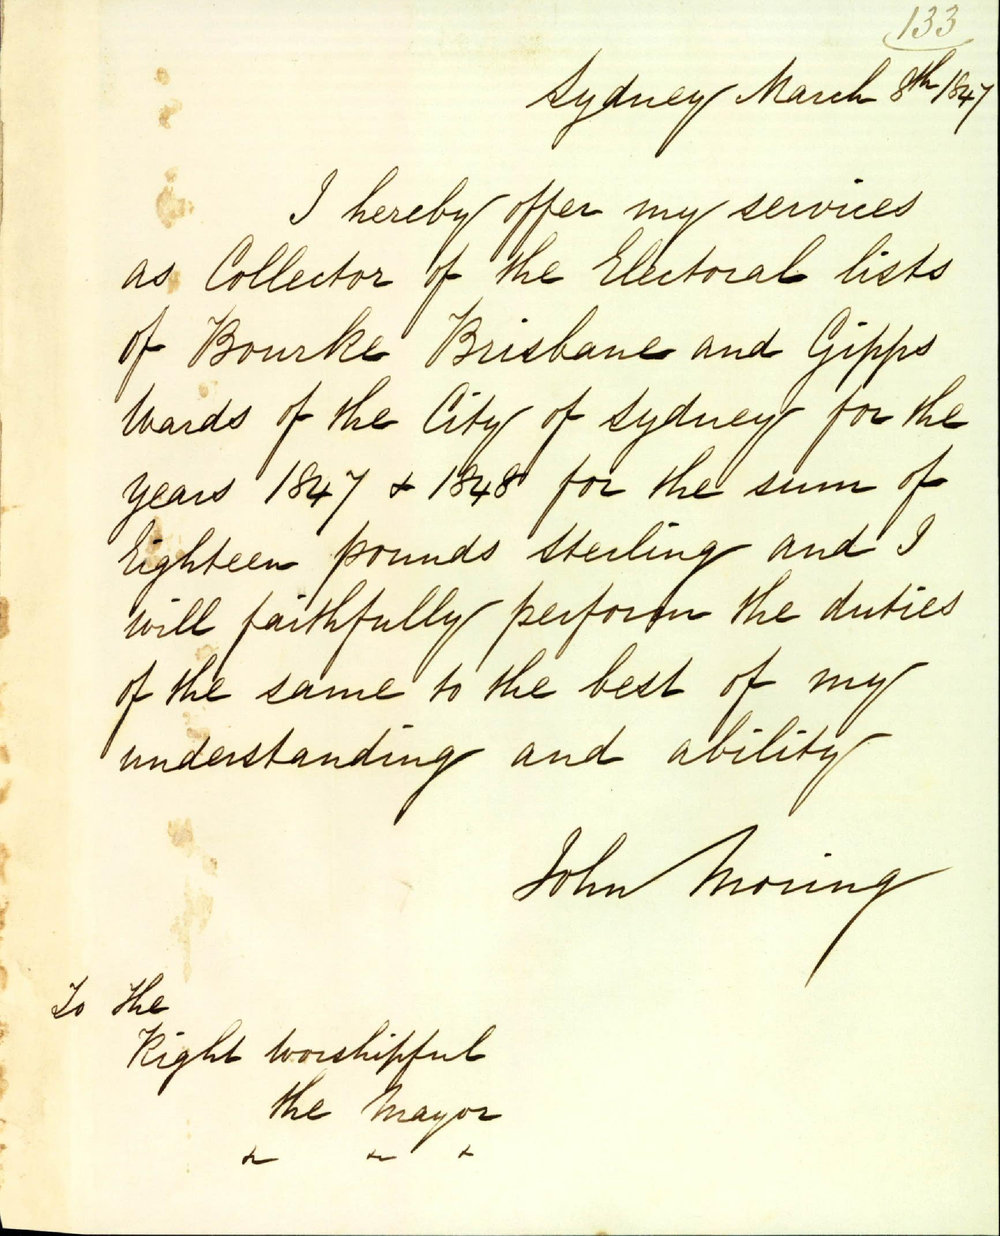 133
Sydney March 8th 1847
I hereby offer my services
as Collector of the Electoral lists
of Bourke Brisbane and Gipps
Wards of the City of Sydney for the
years 1847 & 1848 for the sum of
Eighteen pounds sterling and I
will faithfully perform the duties
of the same to the best of my
understanding and ability
John Moring
To the
Right Worshipful
the Mayor